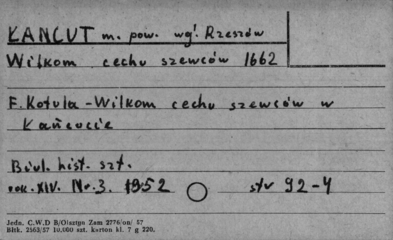 ŁANCUT m. pow. wgł. Rzeszów
Wilkom cechu szewców 1662
F. Kotula - Wilkom cechu szewców w
Łańcucie
Biul. hist. szt.
rok. XIV. Nr. 3. 1952 str 92-4
Jedn. C.W.D B/Olsztyn Zam 2776/on/ 57
Błtk. 2563/57 10.000 szt. karton kl. 7 g 220.